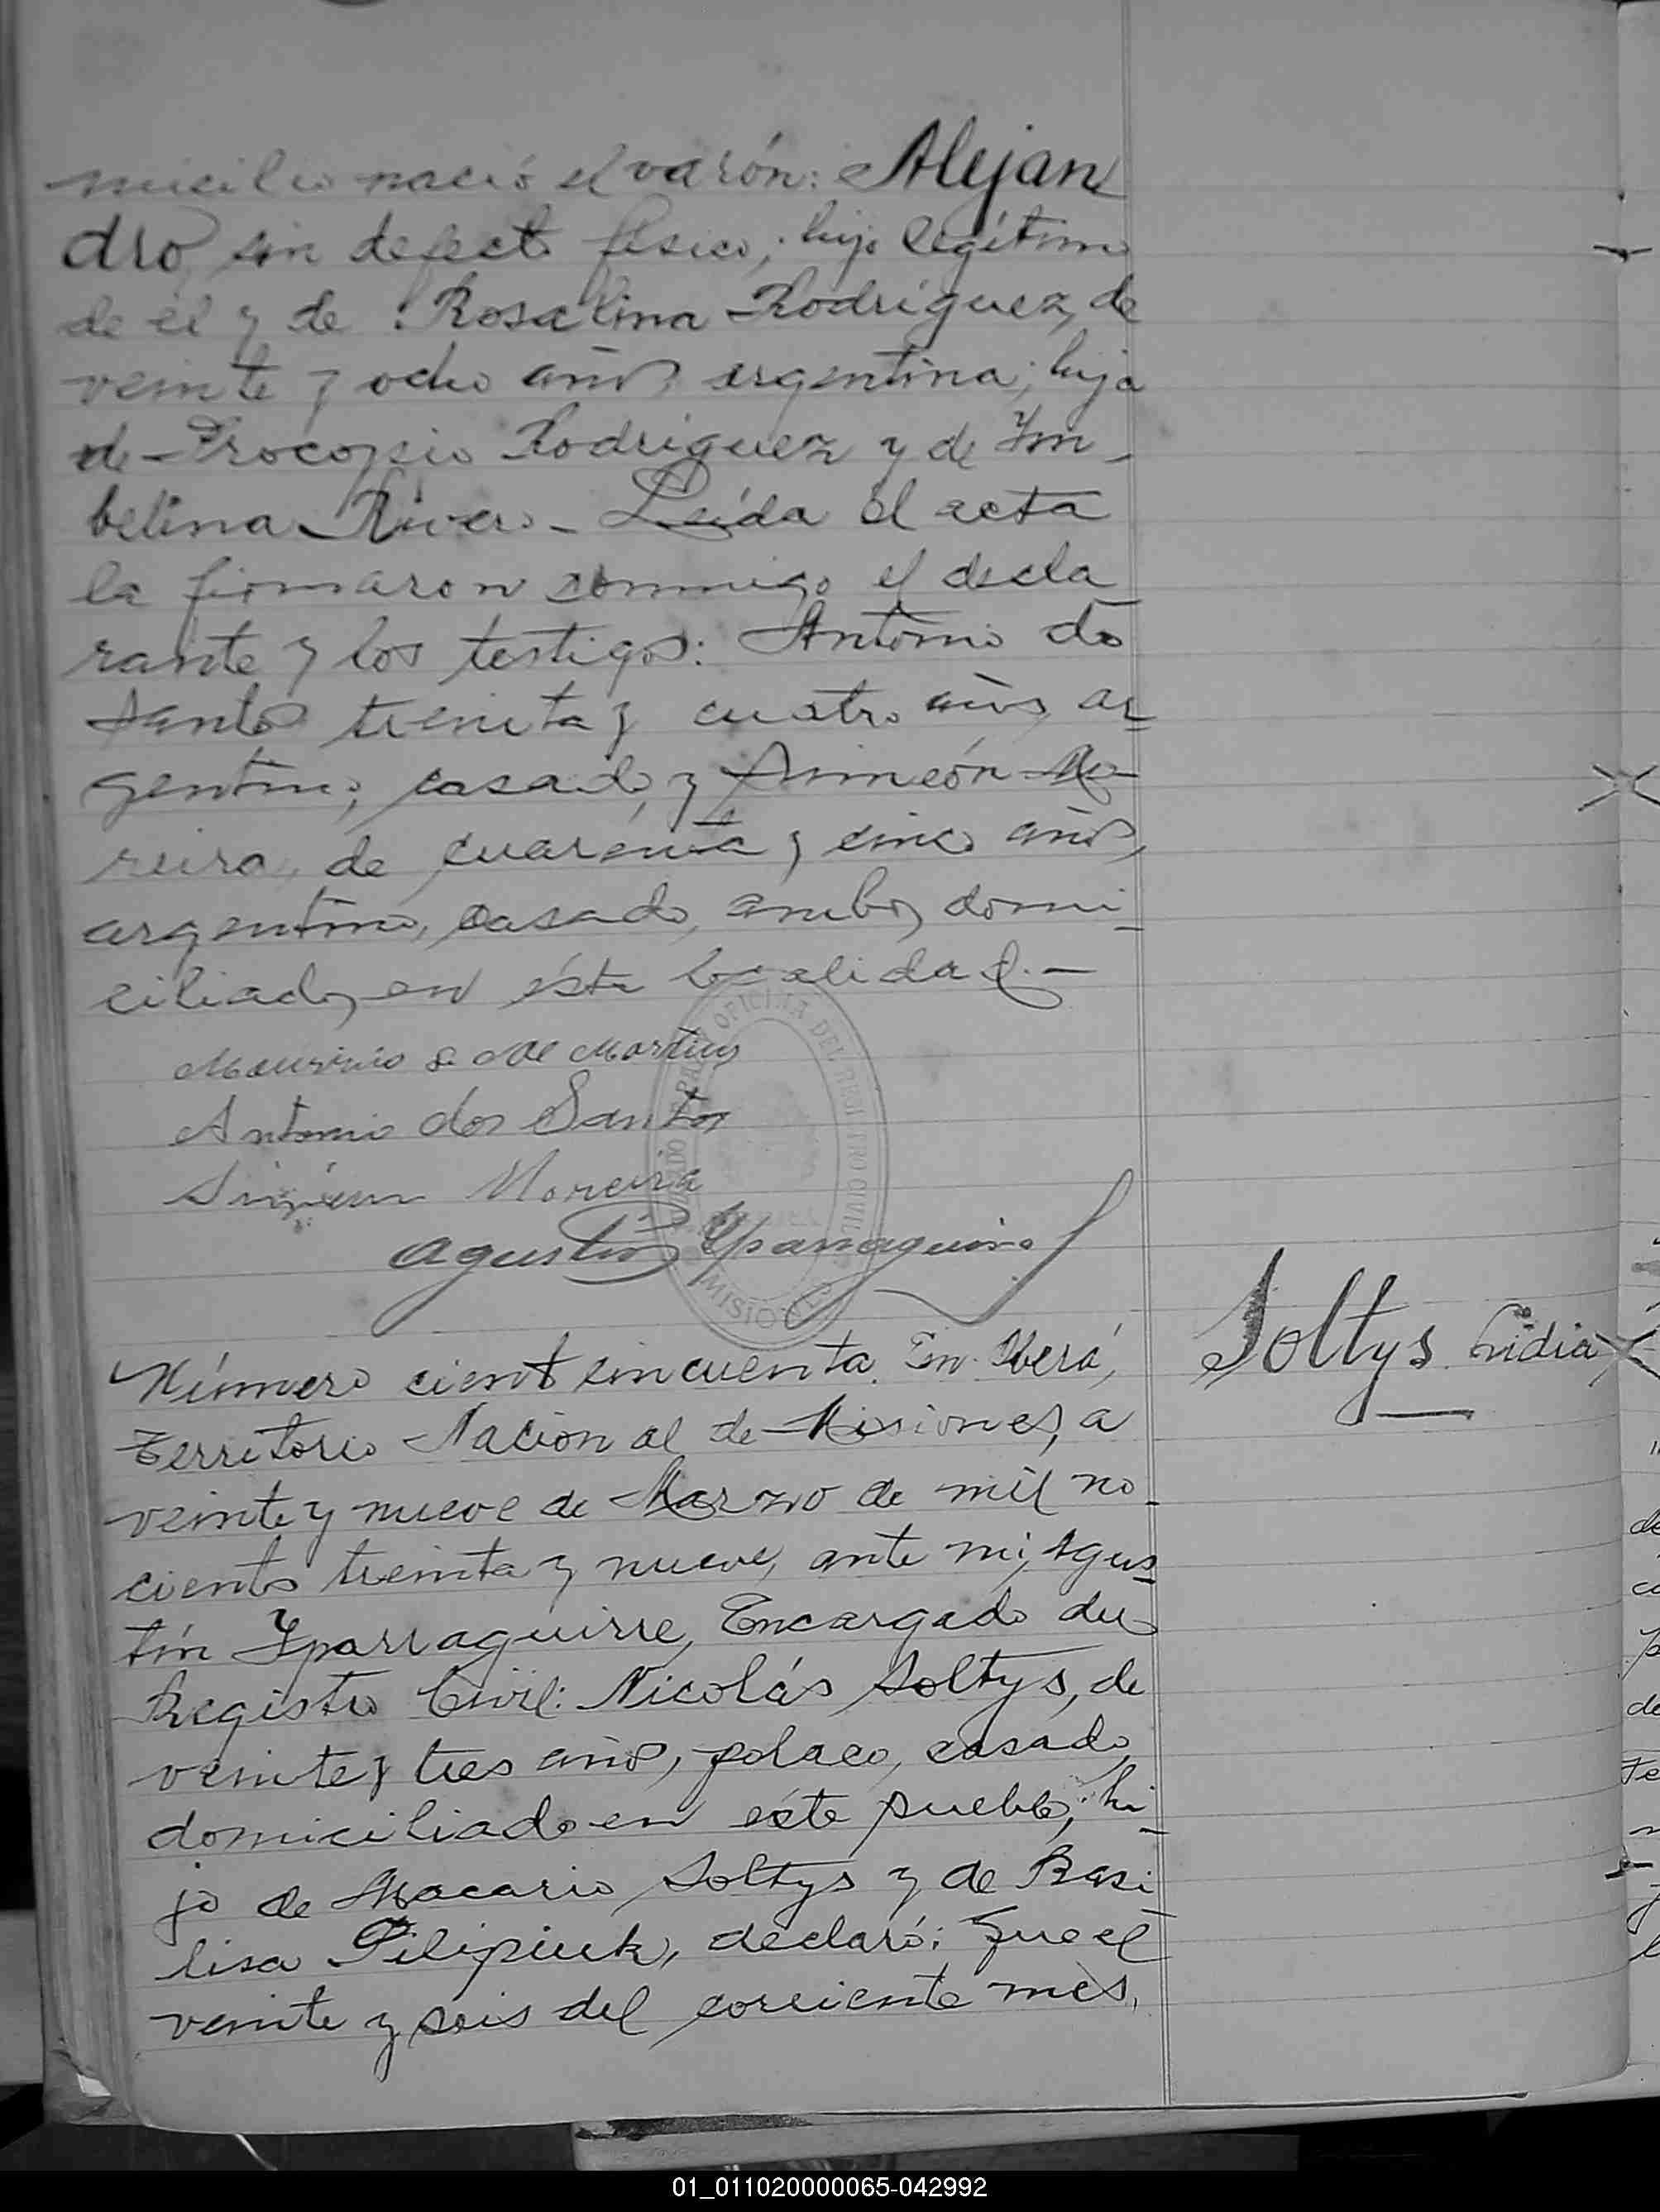 micilio nació el varón: Alejan
dro, sin defecto físico, hijo legítimo
de él y de Rosalina Rodríguez, de
veinte y ocho años, argentina; hija
de Procopio Rodríguez y de Ym-
belina Rivero. Leída el acta
la firmaron conmigo el decla
rante y los testigos: Antonio do
Santos treinta y cuatro años, ar-
gentino, casado, y Simeón Mo-
reira, de cuarenta y cinco años,
argentino, casado, ambos domi-
ciliados en ésta localidad.-
Martins
Antonio dos Santos
Simeon Moreira
Agustín Yparraguirre
OFICINA DEL REGISTRO CIVIL
MISIONES
Número ciento cincuenta. En Oberá,
Territorio Nacional de Misiones, a
veinte y nueve de Marzo de mil no-
cientos treinta y nueve, ante mí, Agus-
tín Yparraguirre, Encargado del
Registro Civil: Nicolás Soltys, de
veinte y tres años, polaco, casado,
domiciliado en éste pueblo, hi-
jo de Macario Soltys y de Basi-
lisa Pilipiuk, declaró: Que el
veinte y seis del corriente mes,
Soltys Lidia
01_011020000065-042992